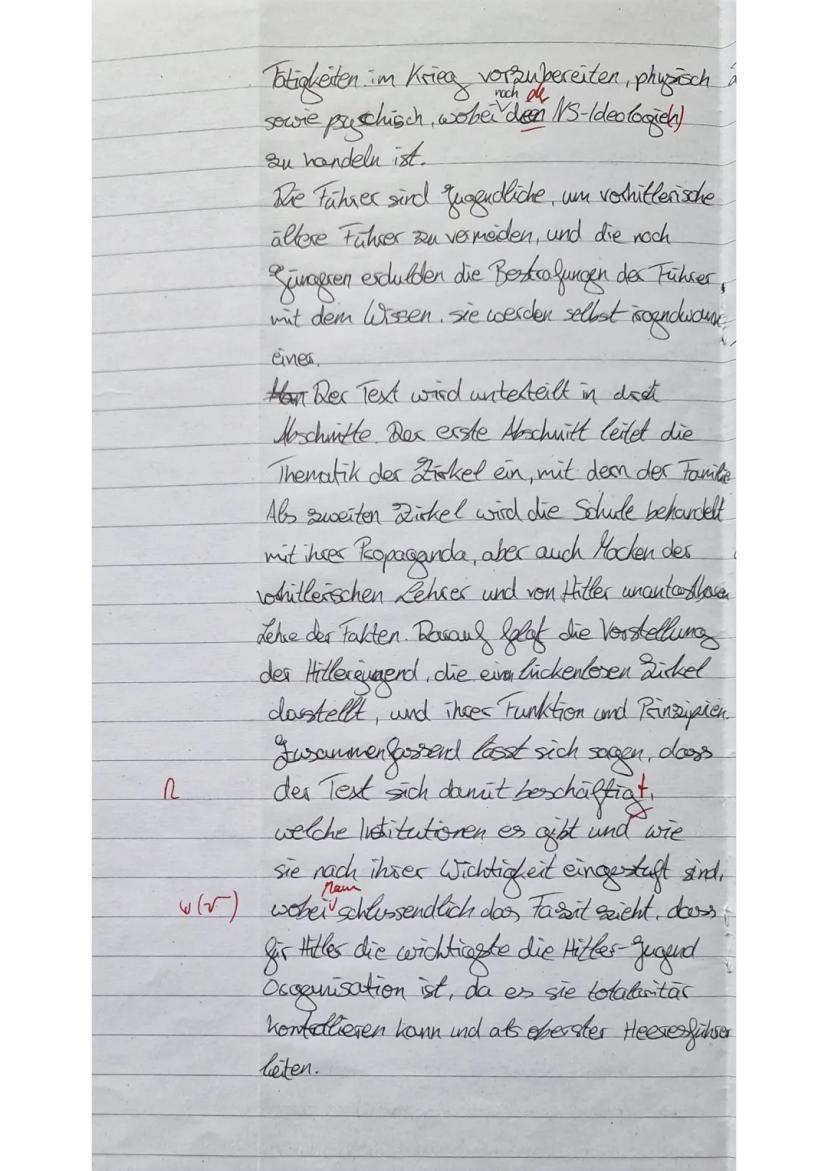 Tätigkeiten im Krieg vorzubereiten, physisch
nach de
sowie psychisch, wobei den NS-Ideologie(n)
zu handeln ist.
Die Führer sind Jugendliche, um vorhitlerische
ältere Führer zu vermeiden, und die noch
Jüngeren erdulden die Bestrafungen der Führer,
mit dem Wissen, sie werden selbst irgendwann
einer.
Der Text wird unterteilt in drei
Abschnitte. Der erste Abschnitt leitet die
Thematik der Zirkel ein, mit dem der Familie
Als zweiten Zirkel wird die Schule behandelt
mit ihrer Propaganda, aber auch Macken der
vorhitlerischen Lehrer und von Hitler unantastbaren
Lehre der Fakten. Darauf folgt die Vorstellung
der Hitlerjugend, die ein lückenlosen Zirkel
darstellt, und ihrer Funktion und Prinzipien.
Zusammenfassend lässt sich sagen, dass
R der Text sich damit beschäftigt,
welche Institutionen es gibt und wie
sie nach ihrer Wichtigkeit eingestuft sind,
Mann
w(v) wobei schlussendlich das Fazit zieht, dass
für Hitler die wichtigste die Hitler-Jugend
Organisation ist, da er sie totalitär
kontrollieren kann und als oberster Heeresführer
leiten.